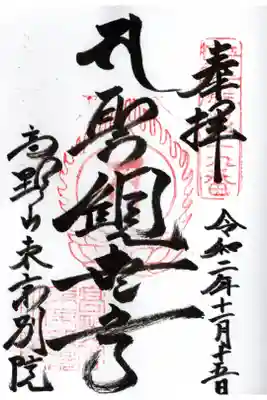 奉拝
令和二年十一月十五日
聖観世音
高野山東京別院